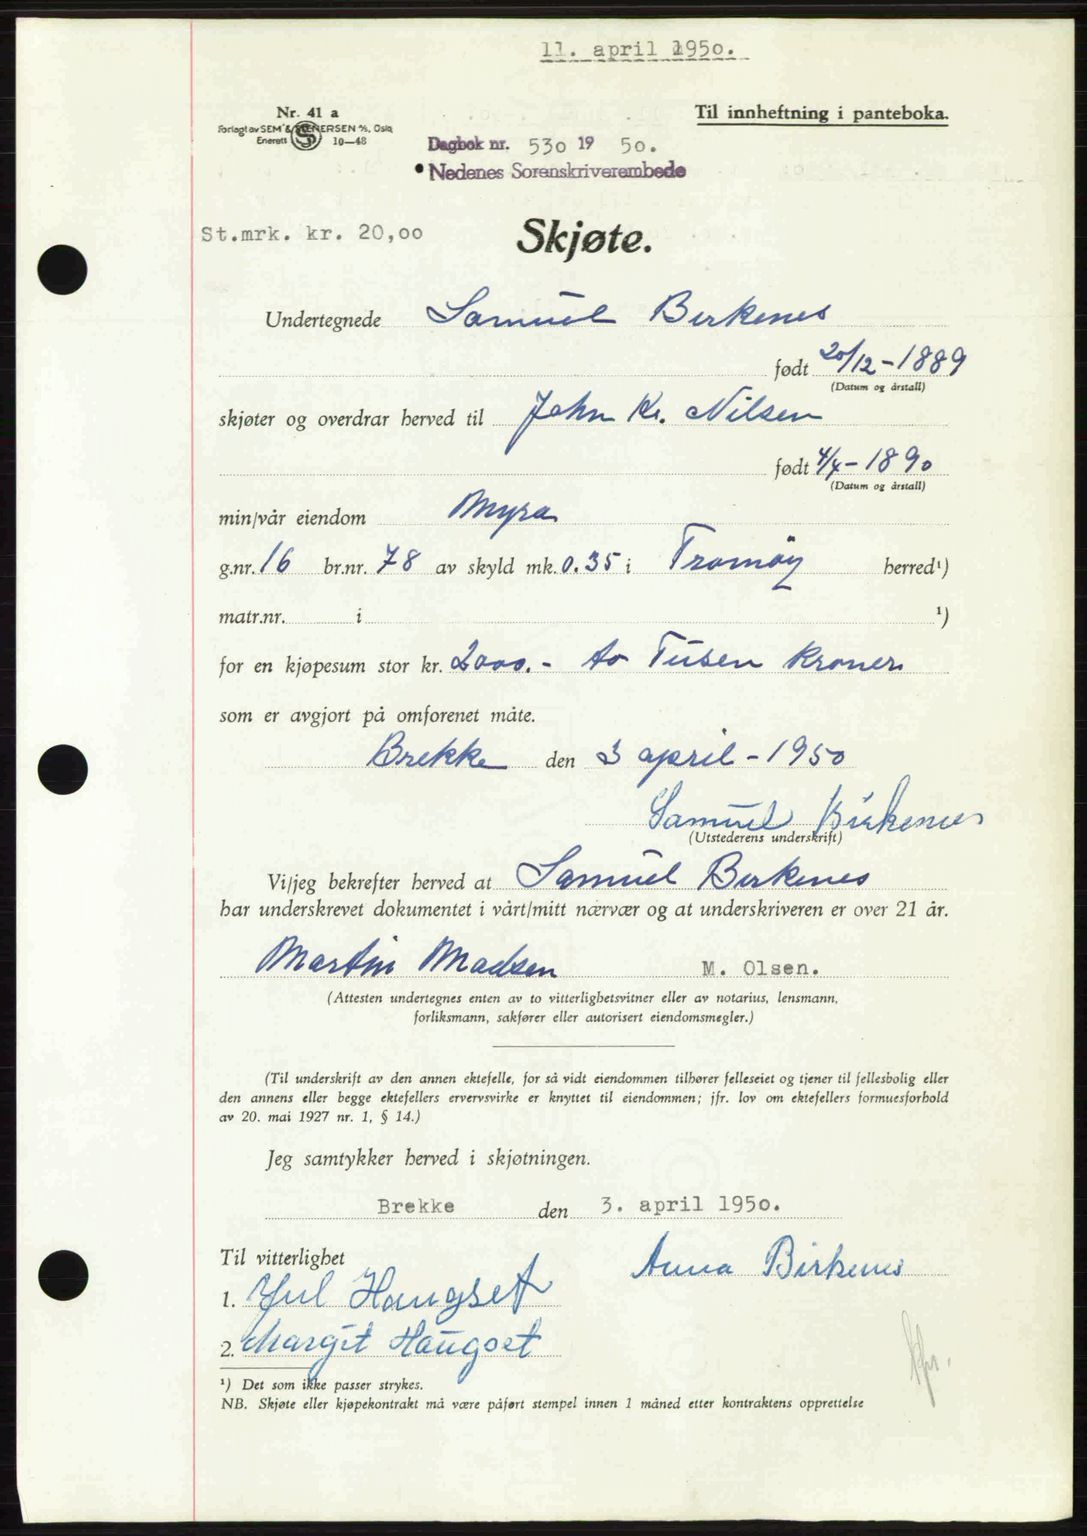 11. april 1950.
Nr. 41 a
Forlagt av SEM & STENERSEN A/S, Oslo
Enerett 10—48
Til innheftning i panteboka.
Dagbok nr. 530 19 50.
Nedenes Sorenskriverembede
St.mrk. kr. 20,00
Skjøte.
Undertegnede Samuel Birkenes
født 20/12 - 1889
(Datum og årstall)
skjøter og overdrar herved til John Kr. Nilsen
født 4/4 - 1890
(Datum og årstall)
min/vår eiendom Myra
g.nr. 16 br.nr. 78 av skyld mk. 0.35 i Tromöy herred¹)
matr.nr. i ¹)
for en kjøpesum stor kr. 2000.- to Tusen Kroner
som er avgjort på omforenet måte.
Brekke den 3 april - 1950
Samuel Birkenes
(Utstederens underskrift)
Vi/jeg bekrefter herved at Samuel Birkenes
har underskrevet dokumentet i vårt/mitt nærvær og at underskriveren er over 21 år.
Martin Madsen M. Olsen.
(Attesten undertegnes enten av to vitterlighetsvitner eller av notarius, lensmann,
forliksmann, sakfører eller autorisert eiendomsmegler.)
(Til underskrift av den annen ektefelle, for så vidt eiendommen tilhører felleseiet og tjener til fellesbolig eller
den annens eller begge ektefellers ervervsvirke er knyttet til eiendommen; jfr. lov om ektefellers formuesforhold
av 20. mai 1927 nr. 1, § 14.)
Jeg samtykker herved i skjøtningen.
Brekke den 3. april 1950.
Til vitterlighet
Anna Birkenes
1. Haugset
2. Margit Haugset
¹) Det som ikke passer strykes.
NB. Skjøte eller kjøpekontrakt må være påført stempel innen 1 måned etter kontraktens opprettelse